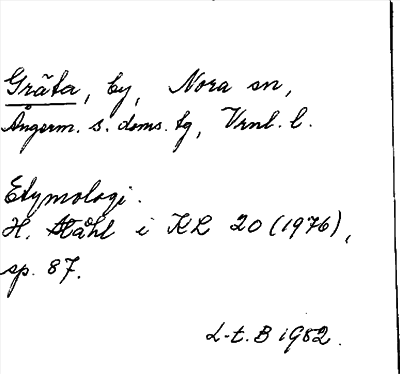 Gräta, by, Nora sn,
Ångerm. s. doms. tg, Vrnl. l.
Etymologi.
H. Ståhl i KL 20 (1976),
sp. 87.
L-t. B 1982.